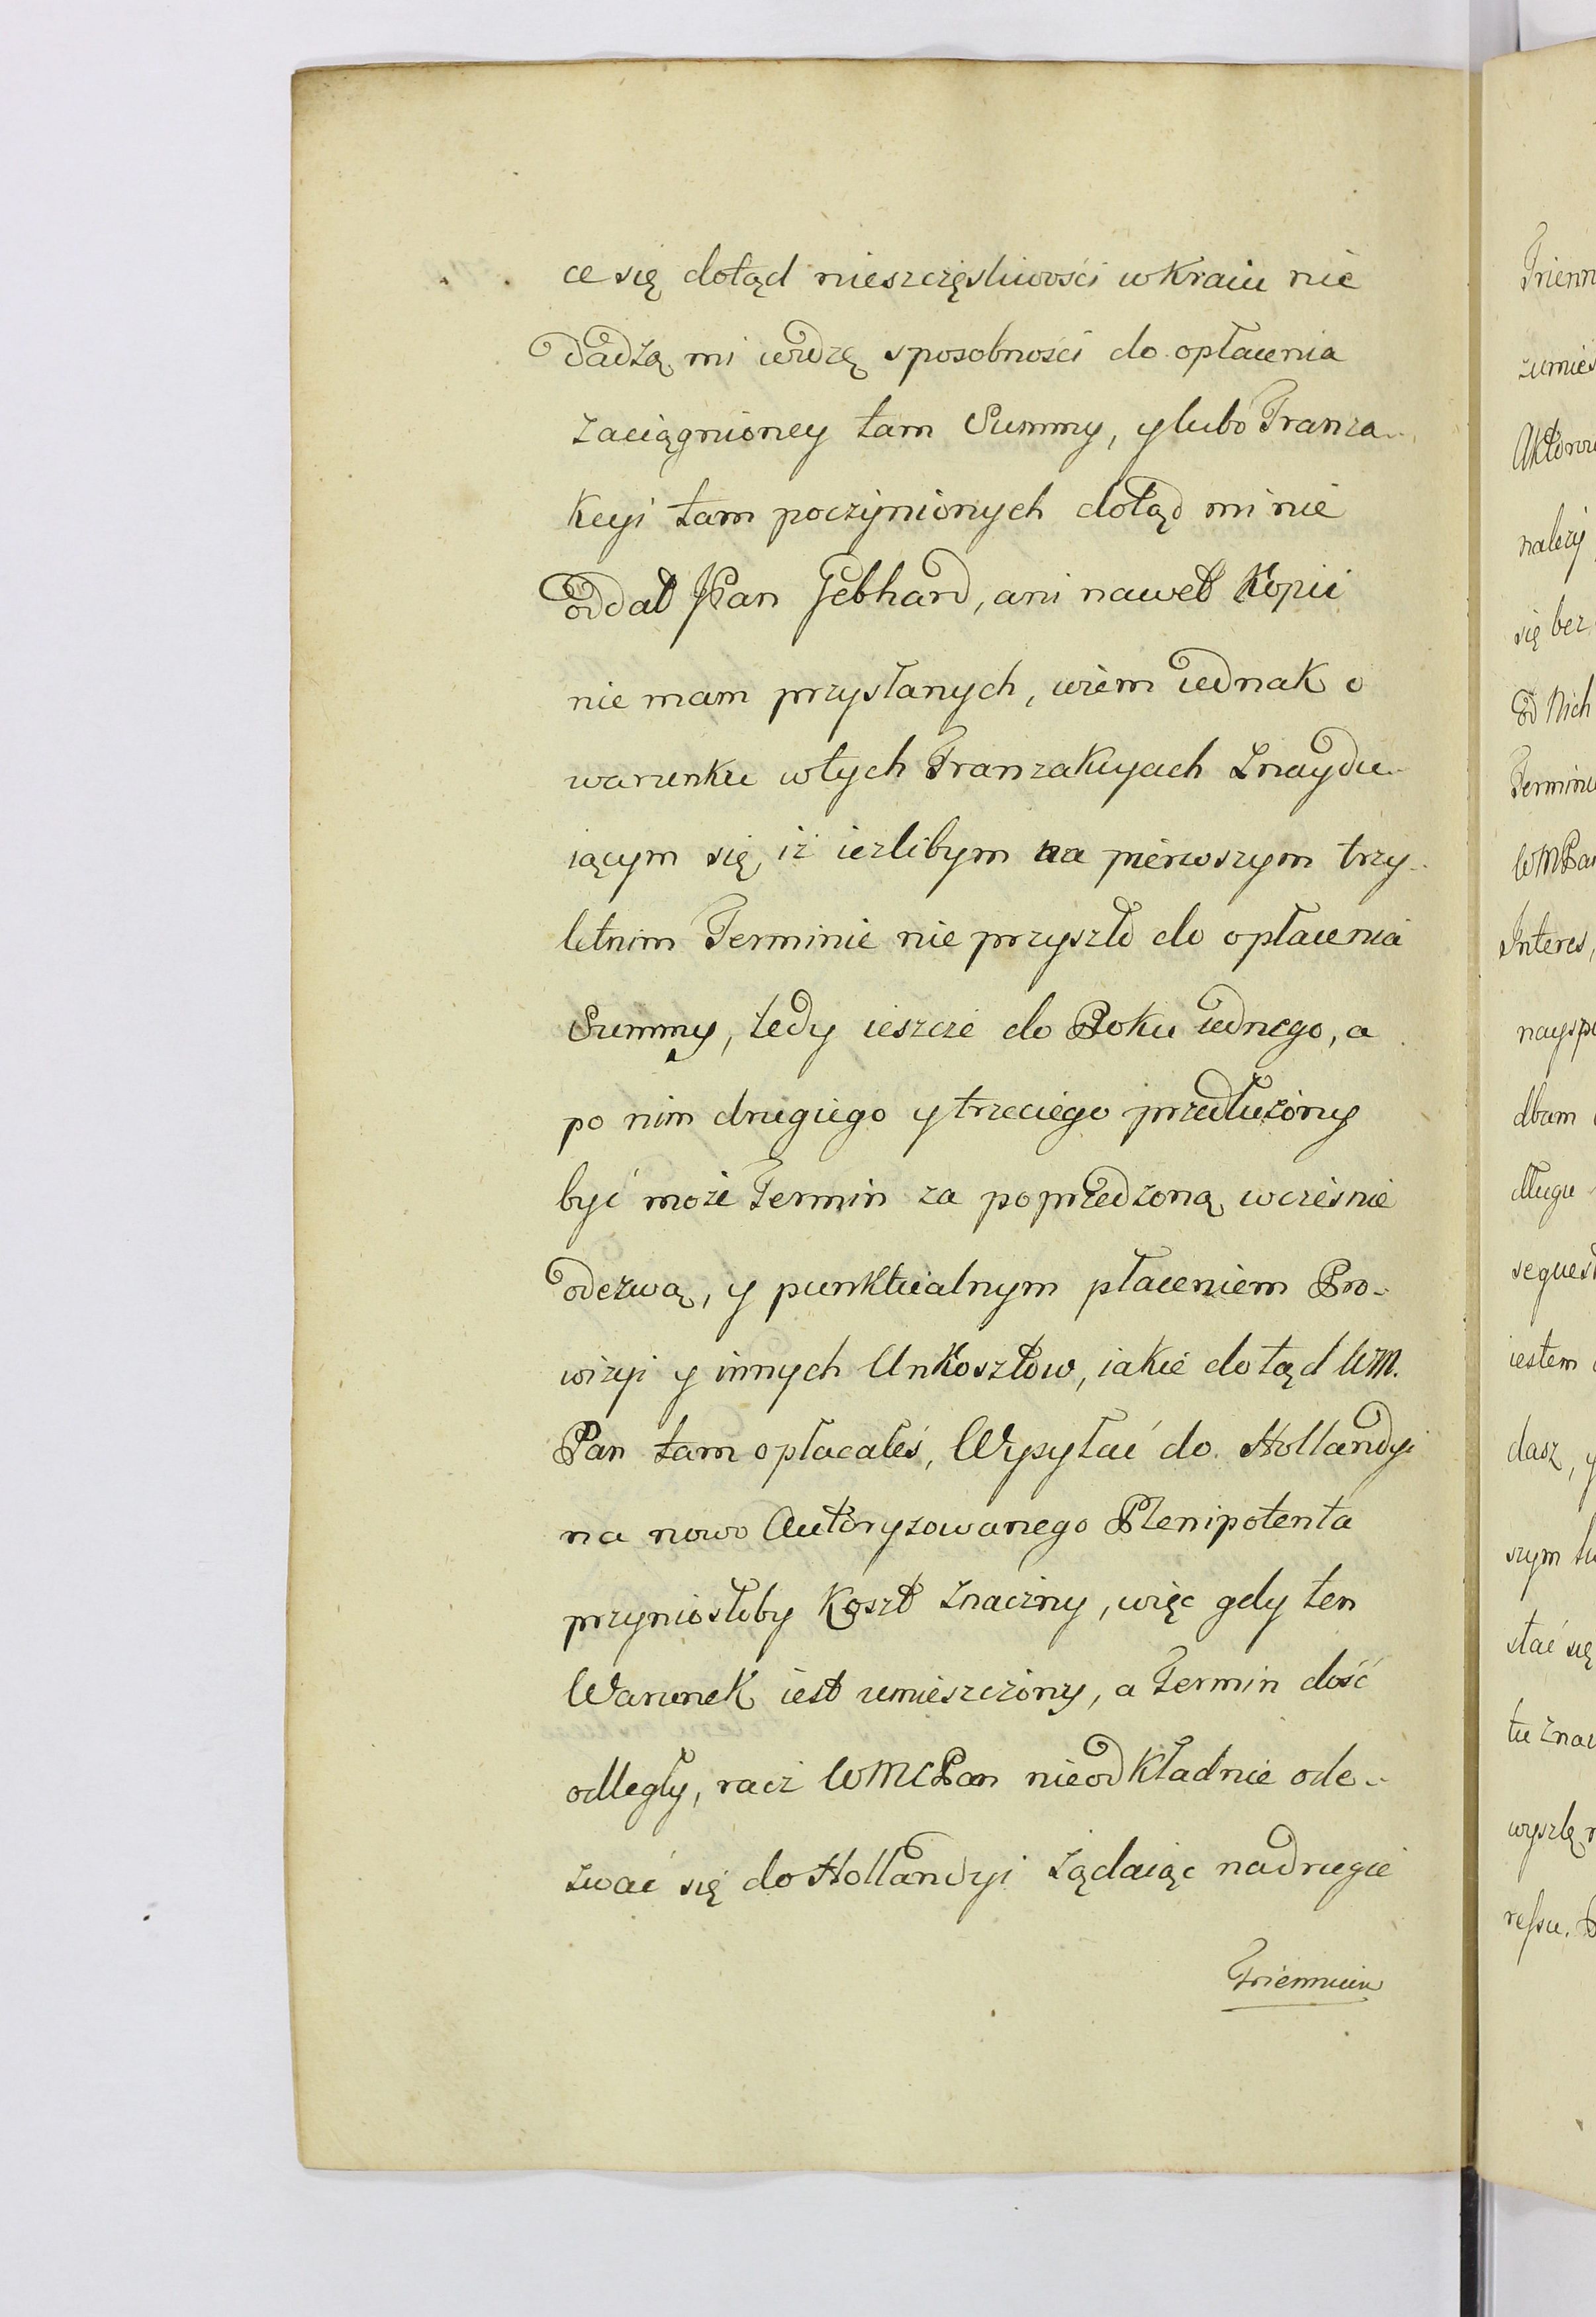 ce się dotąd nieszczęsliwości w Kraiu nie
dadzą mi widzę sposobności do opłacenia
zaciągnioney tam Summy, y lubo Tranza-
kcyi tam poczynionych dotąd mi nie
oddał JPan Gebhard, ani nawet Kopii
nie mam przysłanych, wiem iednak o
warunku w tych Tranzakcyach znaydu-
iącym się, iż ieżlibym na pierwszym trzy-
letnim Terminie nie przyszło do opłacenia
Summy, tedy ieszcze do Roku iednego, a
po nim drugiego y trzeciego przedłużony
być może Termin za poprzedzoną wcześnie
odezwą, y punktualnym płaceniem Pro-
wizyi y innych Unkosztow, iakie dotąd WM.
Pan tam opłacałeś, Wysyłać do Hollandyi
na nowo Autoryzowanego Plenipotenta
przyniosłoby Koszt znaczny, więc gdy ten
Warunek iest umieszczony, a Termin dość
odległy, racz WMCPan nieodkładnie ode-
zwać się do Hollandyi żądaiąc na drugie
Triennium
Trienn
zumies
Aktorow
należy
się bez
od Nich
Terminu
WMPan
Interes,
nayspo
dbam
długu
sequest
iestem
dasz, y
szym
stać się
tu znac
wyszlę
ressu.